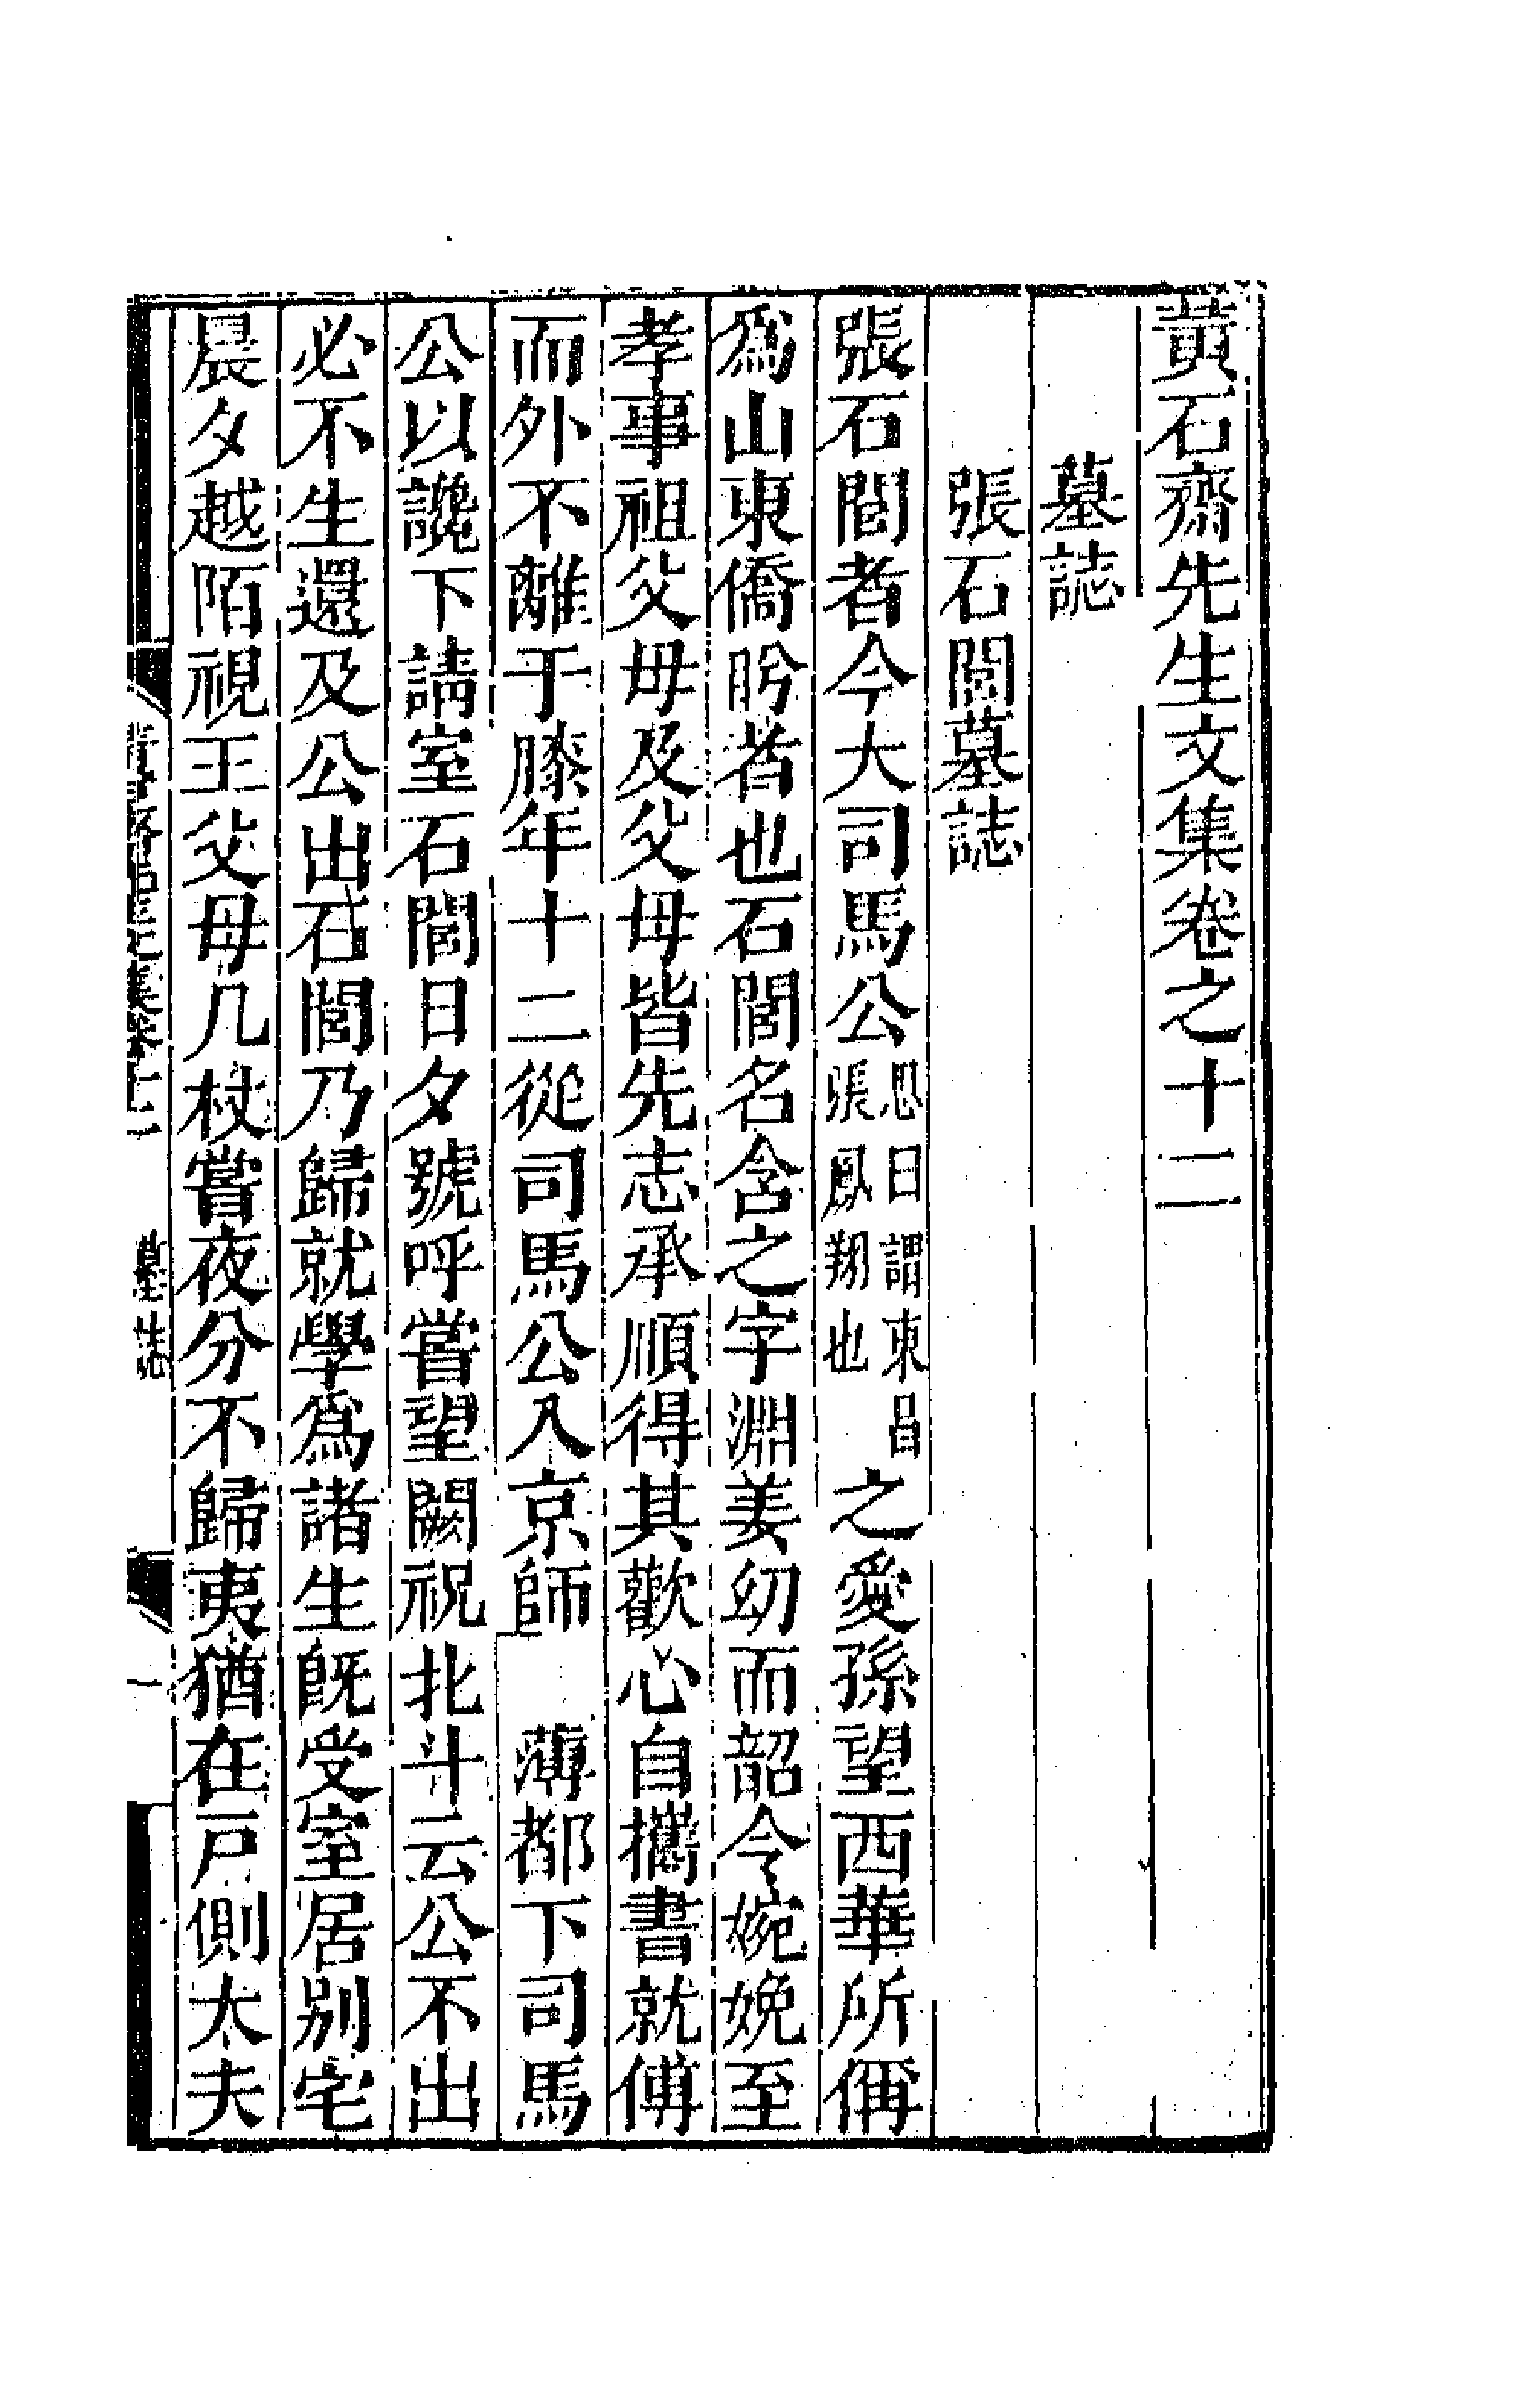 黃石齋先生文集卷之十二
墓誌
張石閶墓誌
張石閶者今大司馬公思曰謂東昌張鳳翔也之愛孫望西華所偁
爲山東僑肸者也石閶名含之字淵姜幼而韶令婉娩至
孝事祖父母及父母皆先志承順得其歡心自攜書就傅
而外不離于膝年十二從司馬公入京師 薄都下司馬
公以讒下請室石閶日夕號呼嘗望闕祝北斗云公不出
必不生還及公出石閶乃歸就學爲諸生旣受室居別宅
晨夕越陌視王父母几杖嘗夜分不歸夷猶在戶側太夫
墓誌
一